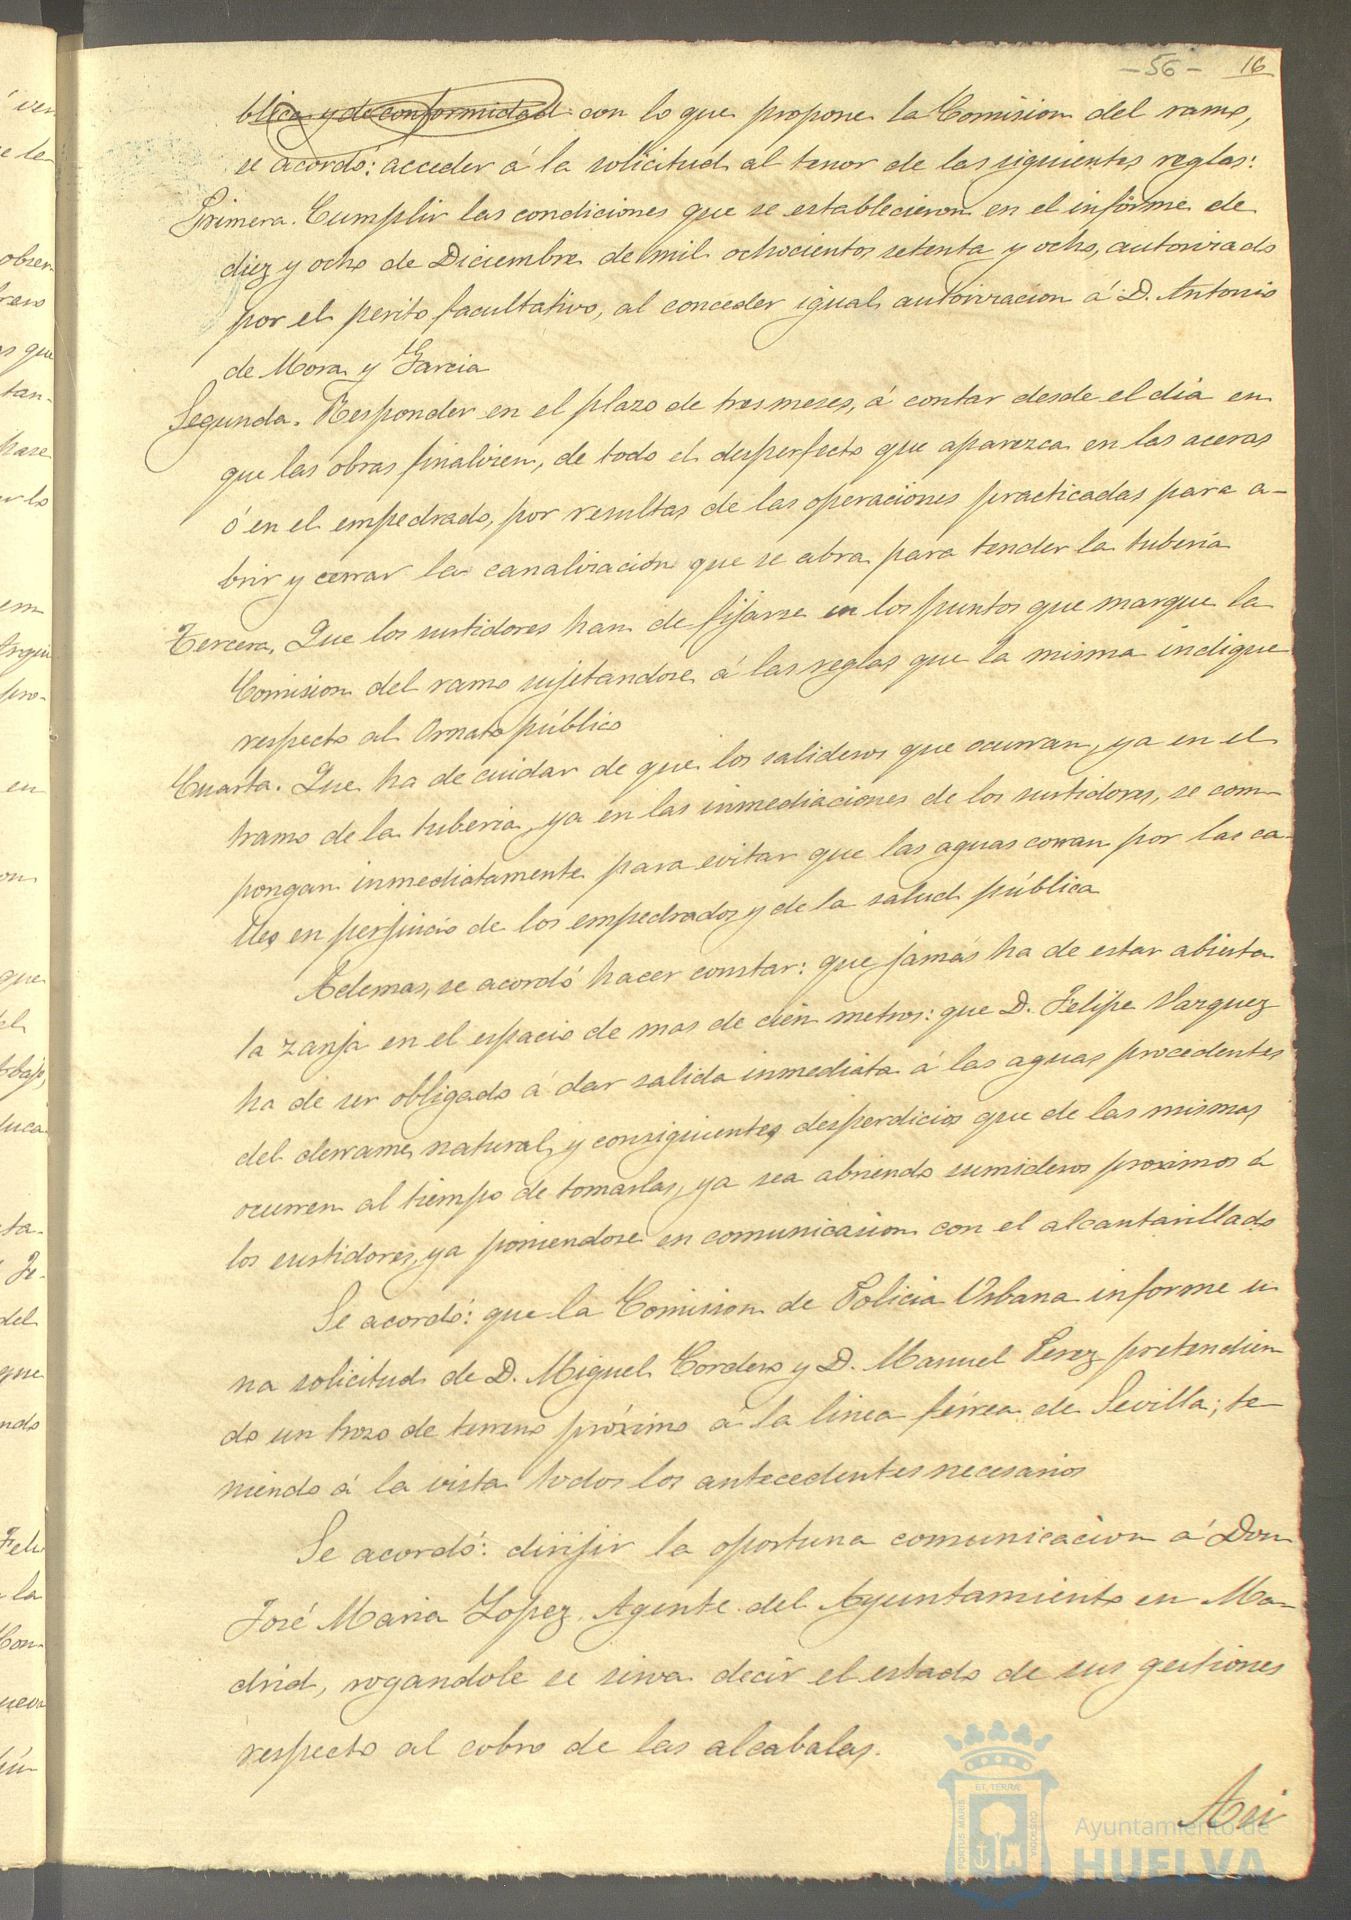 -56- 16
blica y de conformidad con lo que propone la Comision del ramo,
se acordó: acceder á la solicitud al tenor de las siguientes reglas:
Primera. Cumplir las condiciones que se establecieron en el informe de
diez y ocho de Diciembre de mil ochocientos setenta y ocho, autorizado
por el perito facultativo, al conceder igual autorizacion á D. Antonio
de Mora y Garcia
Segunda. Responder en el plazo de tres meses, á contar desde el dia en
que las obras finalizen, de todo el desperfecto que aparezca en las aceras
ó en el empedrado, por resultas de las operaciones practicadas para a-
brir y cerrar la canalización que se abra para tender la tubería
Tercera. Que los surtidores han de fijarse en los puntos que marque la
Comision del ramo sujetandose á las reglas que la misma indique
respecto al Ornato público
Cuarta. Que ha de cuidar de que los salideros que ocurran, ya en el
tramo de la tuberia, ya en las inmediaciones de los surtidores, se com-
pongan inmediatamente para evitar que las aguas corran por las ca-
lles en perjuicio de los empedrados y de la salud pública
Ademas, se acordó hacer constar: que jamás ha de estar abierta
la zanja en el espacio de mas de cien metros: que D. Felipe Vazquez
ha de ser obligado á dar salida inmediata á las aguas procedentes
del derrame natural, y consiguientes desperdicios que de las mismas
ocurren al tiempo de tomarlas, ya sea abriendo sumideros proximos á
los surtidores, ya poniendose en comunicacion con el alcantarillado
Se acordó: que la Comision de Policia Urbana informe u
na solicitud de D. Miguel Cordero y D. Manuel Perez pretendien
do un trozo de terreno próximo á la linea férrea de Sevilla; te-
niendo á la vista todos los antecedentes necesarios
Se acordó: dirijir la oportuna comunicacion á Don
José Maria Lopez, Agente del Ayuntamiento en Ma-
drid, rogandole se sirva decir el estado de sus gestiones
respecto al cobro de las alcabalas.
PORTUS MARIS
ET TERRÆ
CUSTODIA
Ayuntamiento de
HUELVA